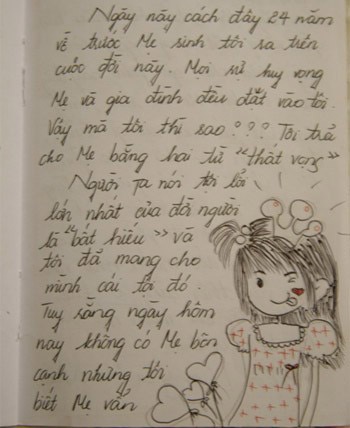 Ngày này cách đây 24 năm
về trước Mẹ sinh tôi ra trên
cuộc đời này. Mọi sự hy vọng
Mẹ và gia đình đều đắt vào tôi.
Vậy mà tôi thì sao ??? Tôi trả
cho Mẹ bằng hai từ "thất vọng"
Người ta nói tội lỗi
lớn nhất của đời người
là "bất hiếu" và
tôi đã mang cho
mình cái tội đó.
Tuy rằng ngày hôm
nay không có Mẹ bên
cạnh nhưng tôi
biết Mẹ vẫn